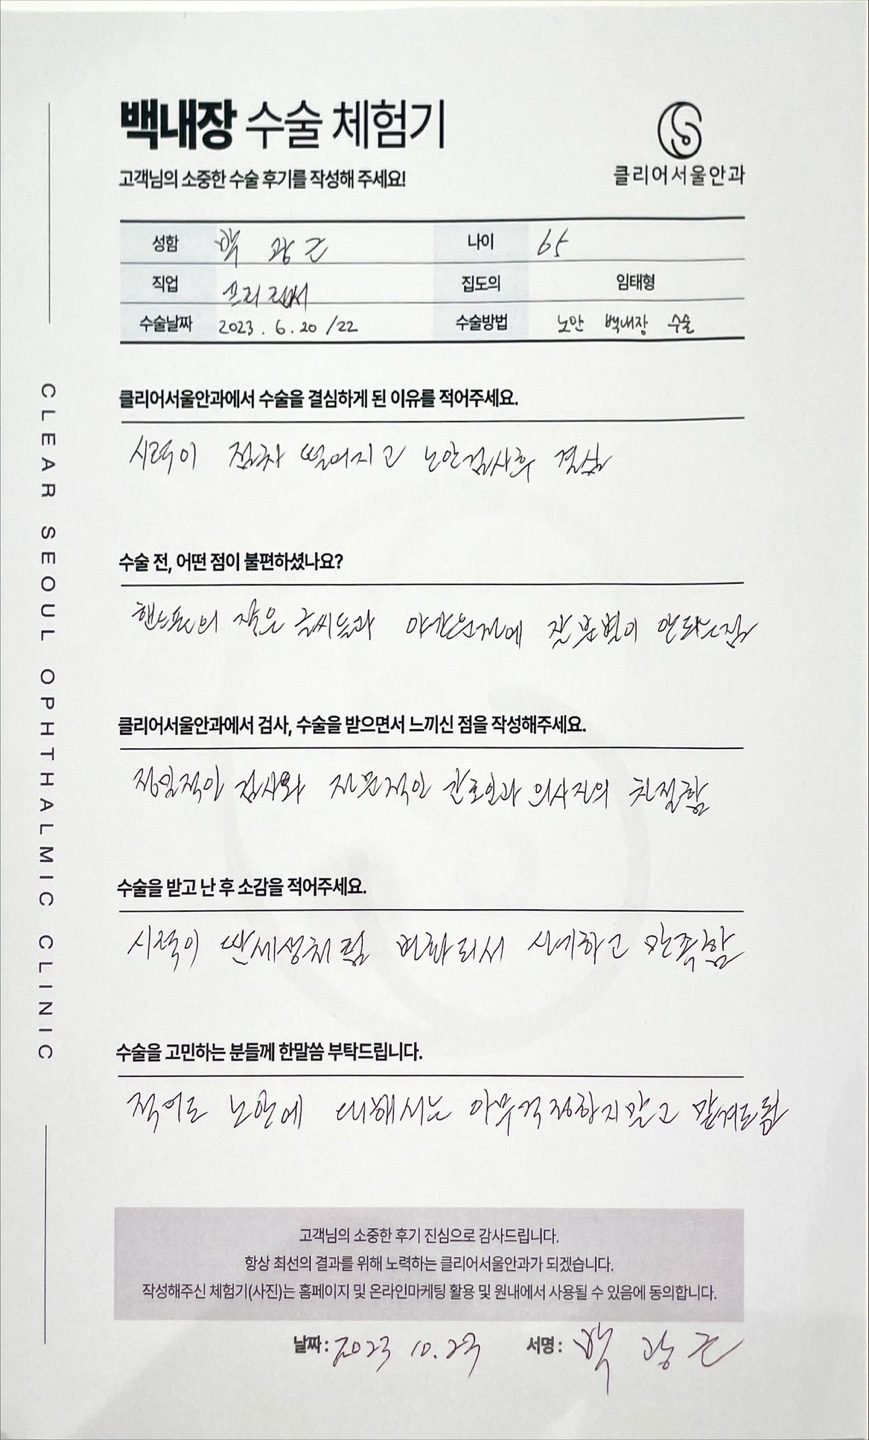 백내장 수술 체험기
고객님의 소중한 수술 후기를 작성해 주세요!
클리어서울안과
성함 백 광 근 나이 65
직업 프리랜서 집도의 임태형
수술날짜 2023 . 6 . 20 / 22 수술방법 노안 백내장 수술
CLEAR SEOUL OPHTHALMIC CLINIC
클리어서울안과에서 수술을 결심하게 된 이유를 적어주세요.
시력이 점차 떨어지고 노안검사후 결심
수술 전, 어떤 점이 불편하셨나요?
핸드폰의 작은 글씨들과 야간운전에 잘 분별이 안되는점
클리어서울안과에서 검사, 수술을 받으면서 느끼신 점을 작성해주세요.
정밀적인 검사와 전문적인 간호인과 의사진의 친절함
수술을 받고 난 후 소감을 적어주세요.
시력이 딴세상처럼 변화되서 신기하고 만족함
수술을 고민하는 분들께 한말씀 부탁드립니다.
적어도 노안에 대해서는 아무걱정하지말고 맡겨도됨
고객님의 소중한 후기 진심으로 감사드립니다.
항상 최선의 결과를 위해 노력하는 클리어서울안과가 되겠습니다.
작성해주신 체험기(사진)는 홈페이지 및 온라인마케팅 활용 및 원내에서 사용될 수 있음에 동의합니다.
날짜 : 2023 10. 23 서명 : 백 광 근